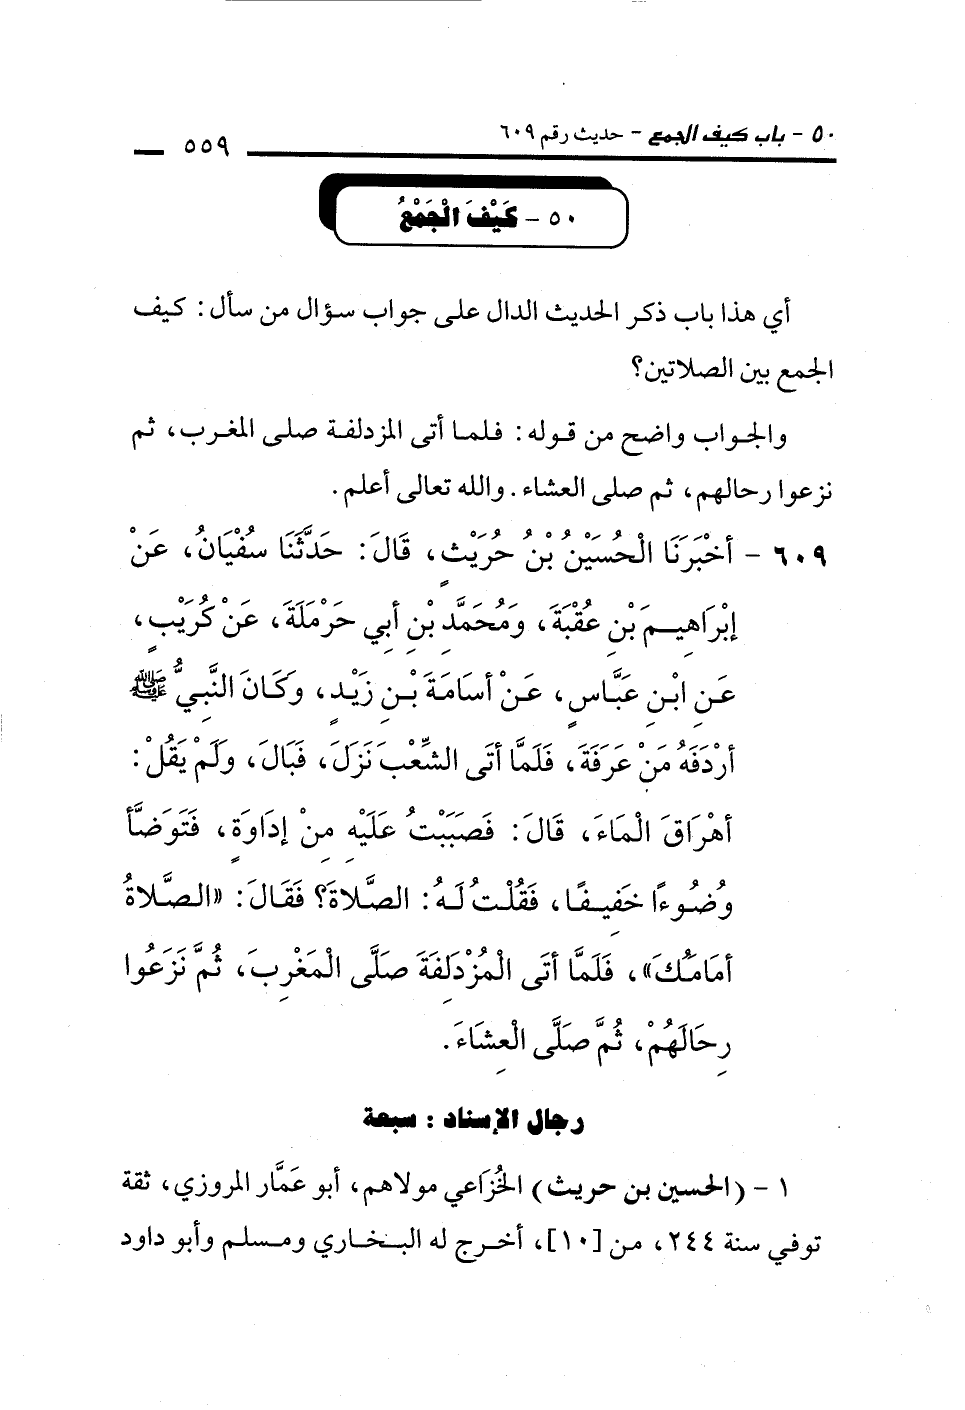 ٥٠ - باب كيف الجمع - حديث رقم ٦٠٩
٥٥٩
٥٠ - كَيْفَ الْجَمْعُ
أي هذا باب ذكر الحديث الدال على جواب سؤال من سأل: كيف
الجمع بين الصلاتين؟
والجواب واضح من قوله: فلما أتى المزدلفة صلى المغرب، ثم
نزعوا رحالهم، ثم صلى العشاء. والله تعالى أعلم.
٦٠٩ - أخْبَرَنَا الْحُسَيْنُ بْنُ حُرَيْثٍ، قَالَ: حَدَّثَنَا سُفْيَانُ، عَنْ
إبْرَاهِيمَ بْنِ عُقْبَةَ، وَمُحَمَّدِ بْنِ أبِي حَرْمَلَةَ، عَنْ كُرَيْبٍ،
عَنِ ابْنِ عَبَّاسٍ، عَنْ أسَامَةَ بْنِ زَيْدٍ، وَكَانَ النَّبِيُّ ﷺ
أرْدَفَهُ مَنْ عَرَفَةَ، فَلَمَّا أتَى الشِّعْبَ نَزَلَ، فَبَالَ، وَلَمْ يَقُلْ:
أهْرَاقَ الْمَاءَ، قَالَ: فَصَبَبْتُ عَلَيْهِ مِنْ إدَاوَةٍ، فَتَوَضَّأ
وُضُوءًا خَفِيفًا، فَقُلْتُ لَهُ: الصَّلاةَ؟ فَقَالَ: «الصَّلاةُ
أمَامَكَ»، فَلَمَّا أتَى الْمُزْدَلِفَةَ صَلَّى الْمَغْرِبَ، ثُمَّ نَزَعُوا
رِحَالَهُمْ، ثُمَّ صَلَّى الْعِشَاءَ.
رجال الإسناد : سبعة
١ - (الحسين بن حريث) الخُزَاعي مولاهم، أبو عمَّار المروزي، ثقة
توفي سنة ٢٤٤، من [١٠]، أخرج له البخاري ومسلم وأبو داود